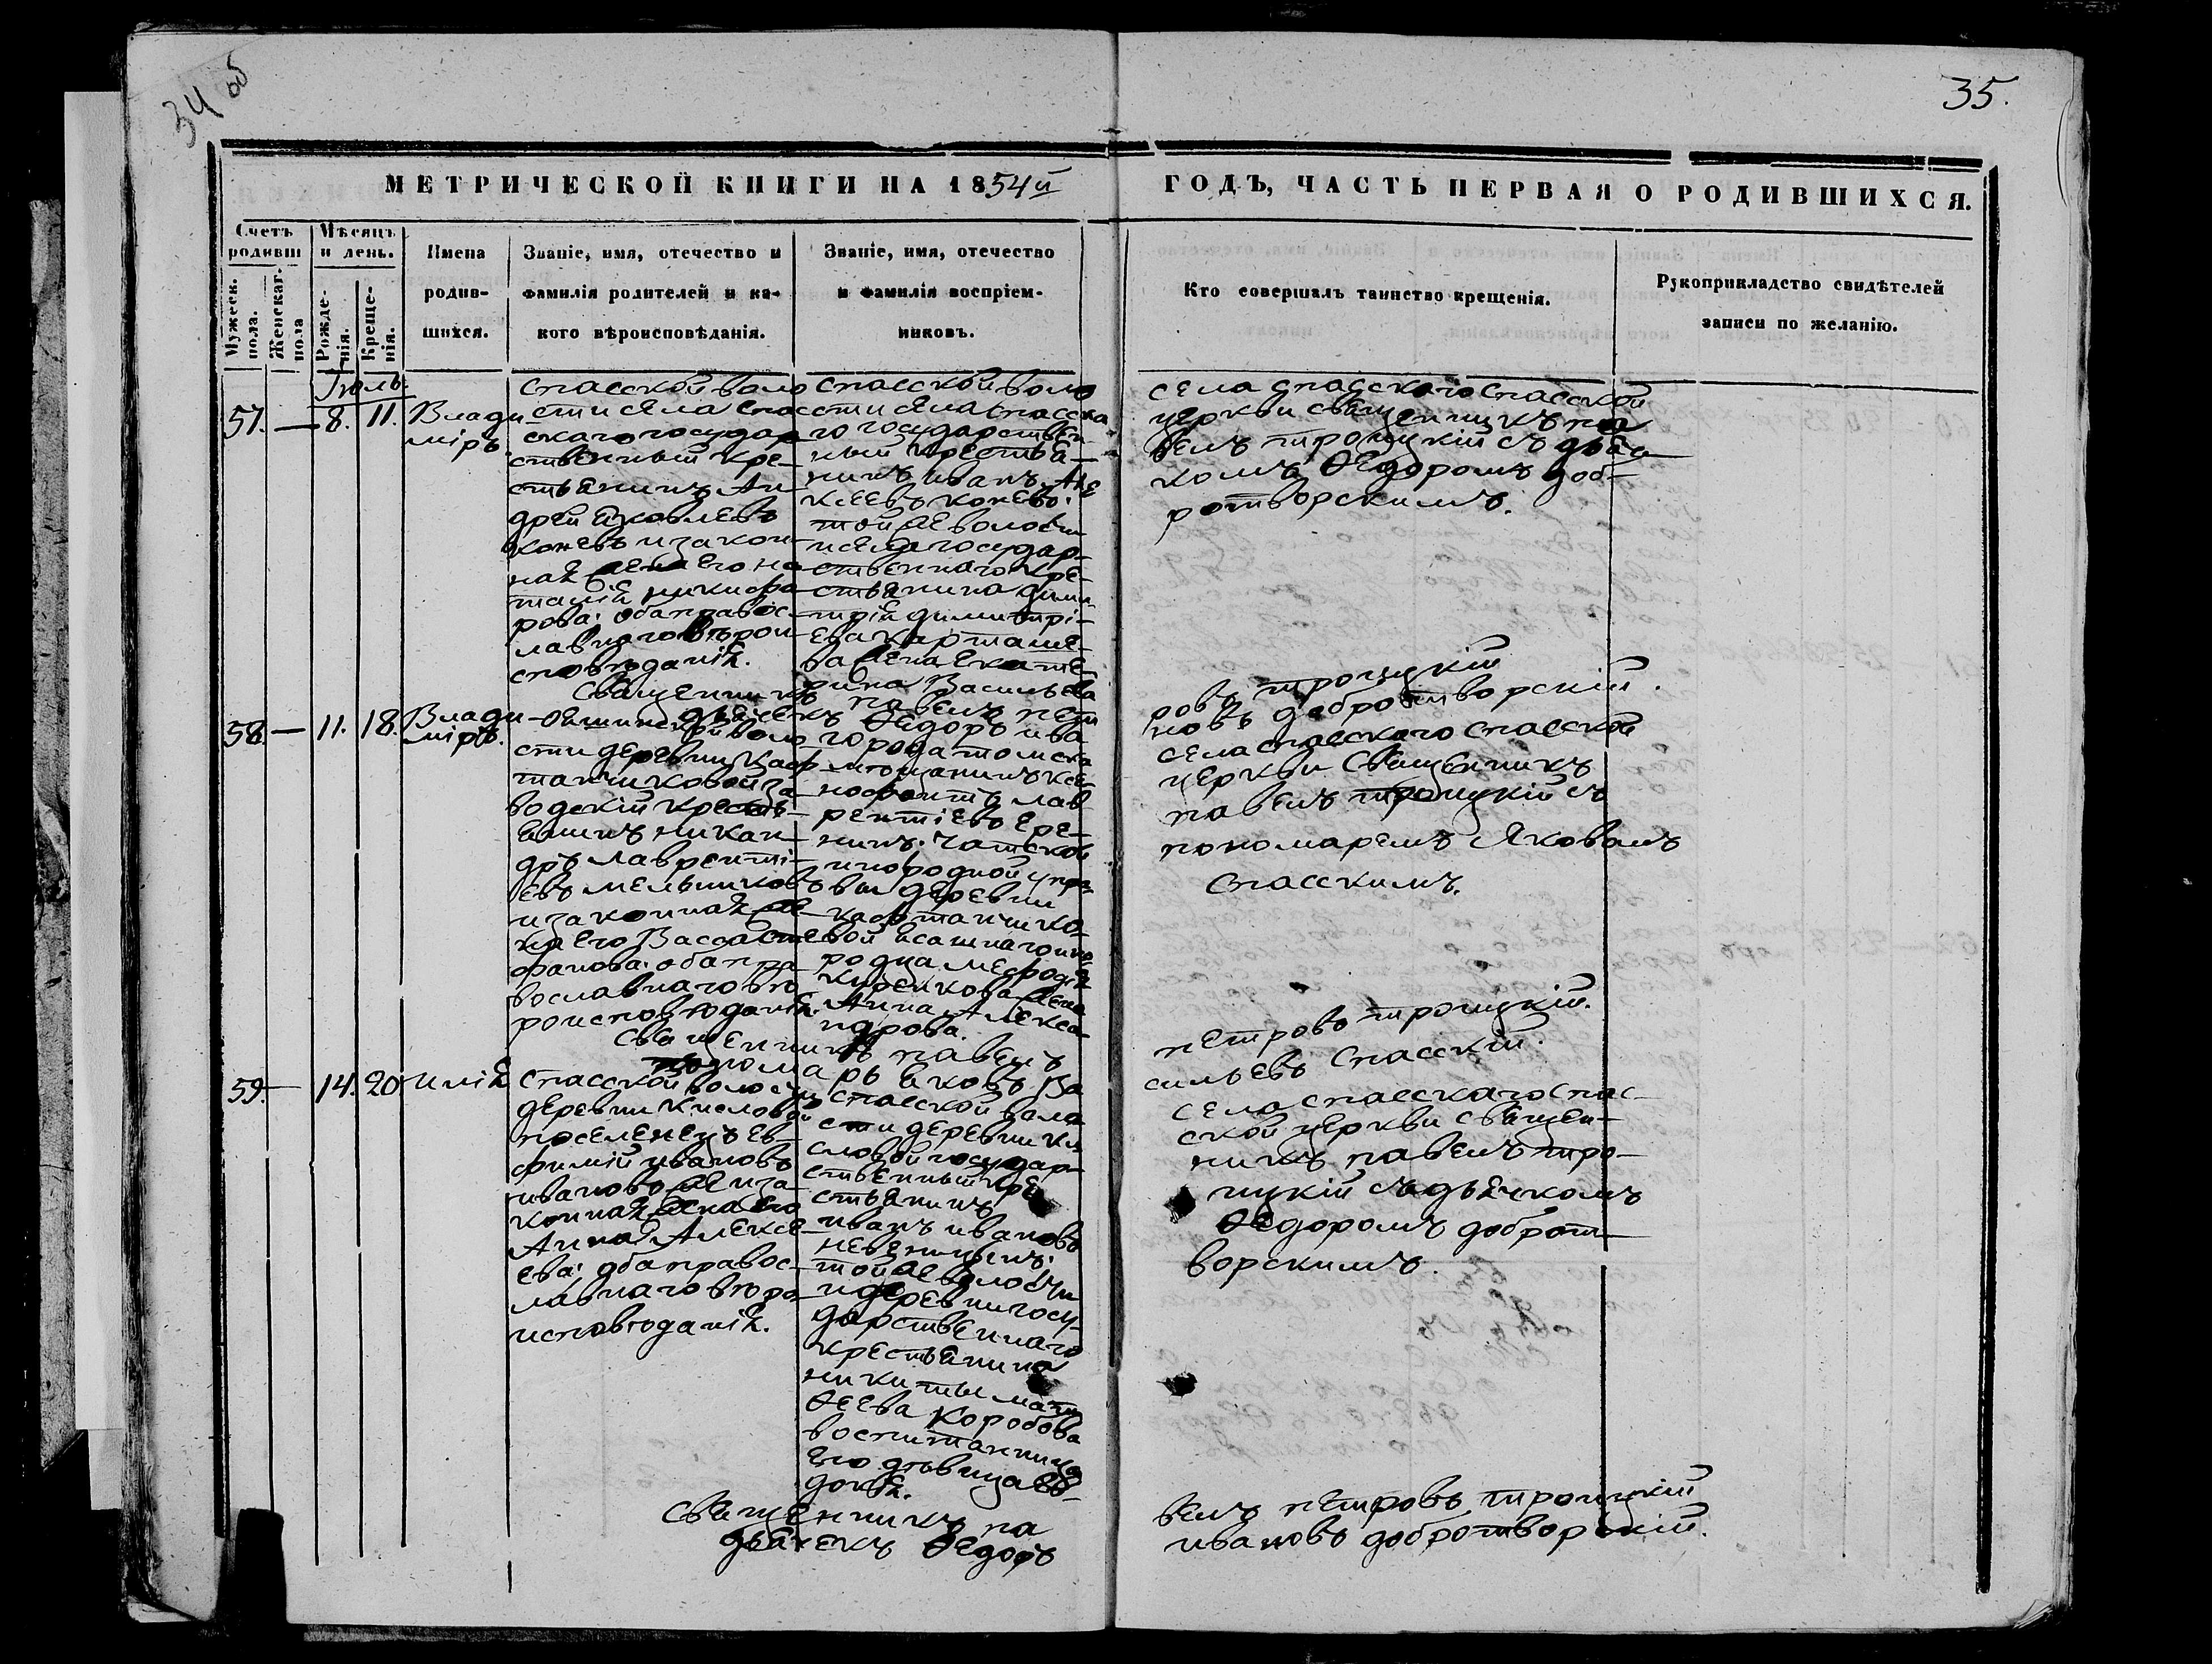 34 об
35.
МЕТРИЧЕСКОЙ КНИГИ НА 1854й
ГОДЪ, ЧАСТЬ ПЕРВАЯ О РОДИВШИХСЯ.
Счетъ родивш
Мужеск. пола.
Женскаг. пола
Мѣсяцъ и день.
Рожде-нія.
Креще-нія.
Имена
родив-
шихся.
Званіе, имя, отечество и
фамилія родителей и ка-
кого вѣроисповѣданія.
Званіе, имя, отечество
и фамилія воспріем-
никовъ.
Кто совершалъ таинство крещенія.
Рукоприкладство свидѣтелей
записи по желанію.
Іюль
57. — 8. 11. Влади
міръ.
Спасской воло
сти села Спас
скаго государ
ственный кре-
стьянинъ Ан-
дрей Яковлевъ
Коневъ и закон-
ная жена его На
талія Никифо
рова: оба правос-
лавнаго вѣрои
сповѣданія.
Спасской воло
сти села Спасска
го государствен-
ный крестья-
нинъ Иванъ Але
ксеевъ Коневъ:
той же волости
и села государ-
ственнаго кре-
стьянина Дими
трія Димитрі-
ева Карташе-
ва жена Екате
рина Васильева
села Спасскаго Спасской
церкви священникъ Па
велъ Троицкій съ дьяч
комъ Ѳедоромъ Доб-
ротворскимъ.
Священникъ Павелъ Пет
ровъ Троицкій
дьячекъ Ѳедоръ Ива
новъ Добротворскій.
58. — 11. 18. Влади
міръ.
воло
сти деревни Каф
танчиковой за
водскій кресть-
янинъ Никан-
дръ Лавренті-
евъ Мельниковъ
и законная же
на его Васса Сте
фанова: оба пра
вославнаго вѣ
роисповѣданія.
города Томска
мѣщанинъ Ксе
нофонтъ Лав
рентіевъ Ере-
нинъ: Чатской
инородной упра
вы деревни
Кафтанчико-
вой ясашнаго ино
родца Меѳодія
Киренкова жена
Анна Алекса
ндрова.
села Спасскаго Спасской
церкви Священникъ
Павелъ Троицкій съ
пономаремъ Яковомъ
Спасскимъ.
Священникъ Павелъ
Петровъ Троицкій.
пономарь Яковъ Ва
сильевъ Спасскій.
59. — 14. 20. Илія
Спасской волости
деревни Кисловой
поселенецъ Ев-
фимій Ивановъ
Ивановъ же и за
конная жена его
Анна Алексе
ева: оба правос-
лавнаго вѣро
исповѣданія.
Спасской воло
сти деревни Ки
словой государ-
ственный кре
стьянинъ
Иванъ Ивановъ
той же волости
и деревни госу-
дарственнаго
крестьянина
Никиты Мат
ѳеева Коробова
воспитанница
его дѣвица Ев-
докія.
села Спасскаго Спас-
ской церкви священ-
никъ Павелъ Тро-
ицкій съ дьячкомъ
Ѳедоромъ Доброт-
ворскимъ.
Священникъ Па
велъ Петровъ Троицкій
дьячекъ Ѳедоръ
Ивановъ Добротворскій.